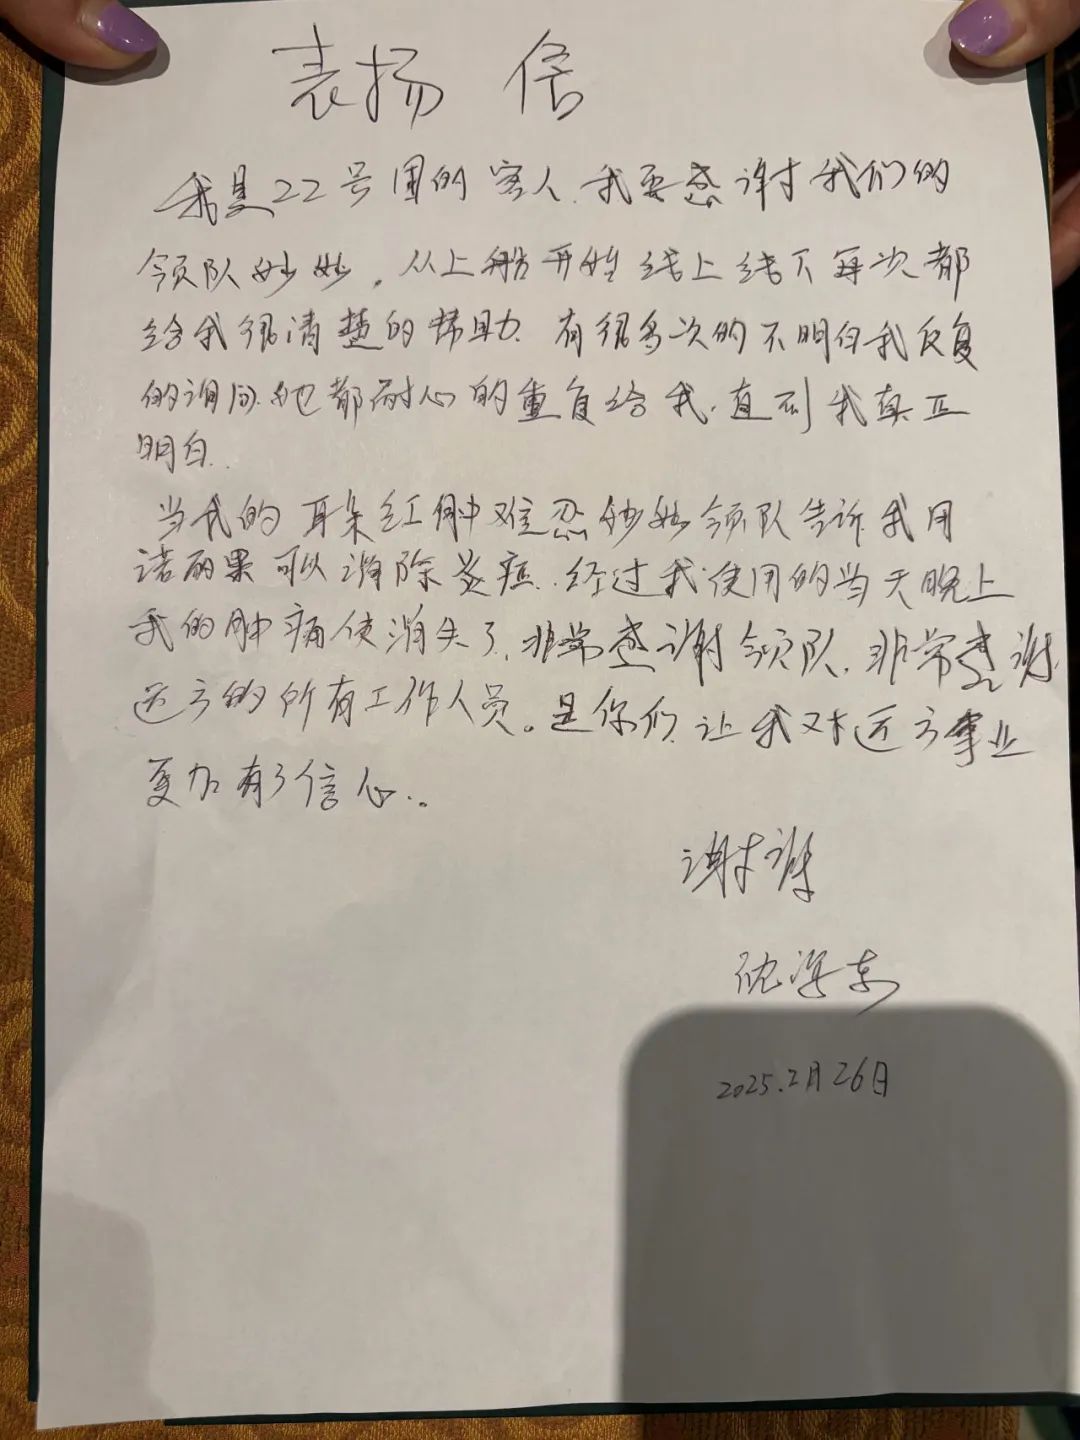 表扬 信
我是22号团的客人.我要感谢我们的
领队妙妙。从上船开始线上线下每次都
给我很清楚的帮助.有很多次的不明白我反复
的询问.她都耐心的重复给我.直到我真正
明白.
当我的耳朵红肿难忍妙妙领队告诉我用
诺丽果可以消除炎症.经过我使用的当天晚上
我的肿痛便消失了.非常感谢领队.非常感谢
远方的所有工作人员。是你们让我对远方事业
更加有了信心..
谢谢
沈海东
2025.2月26日